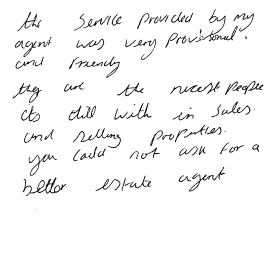 the service provided by my
agent was very provisional.
and friendly
they are the nicest people
its still with in sales.
and selling properties.
you could not ask for a
better estate agent